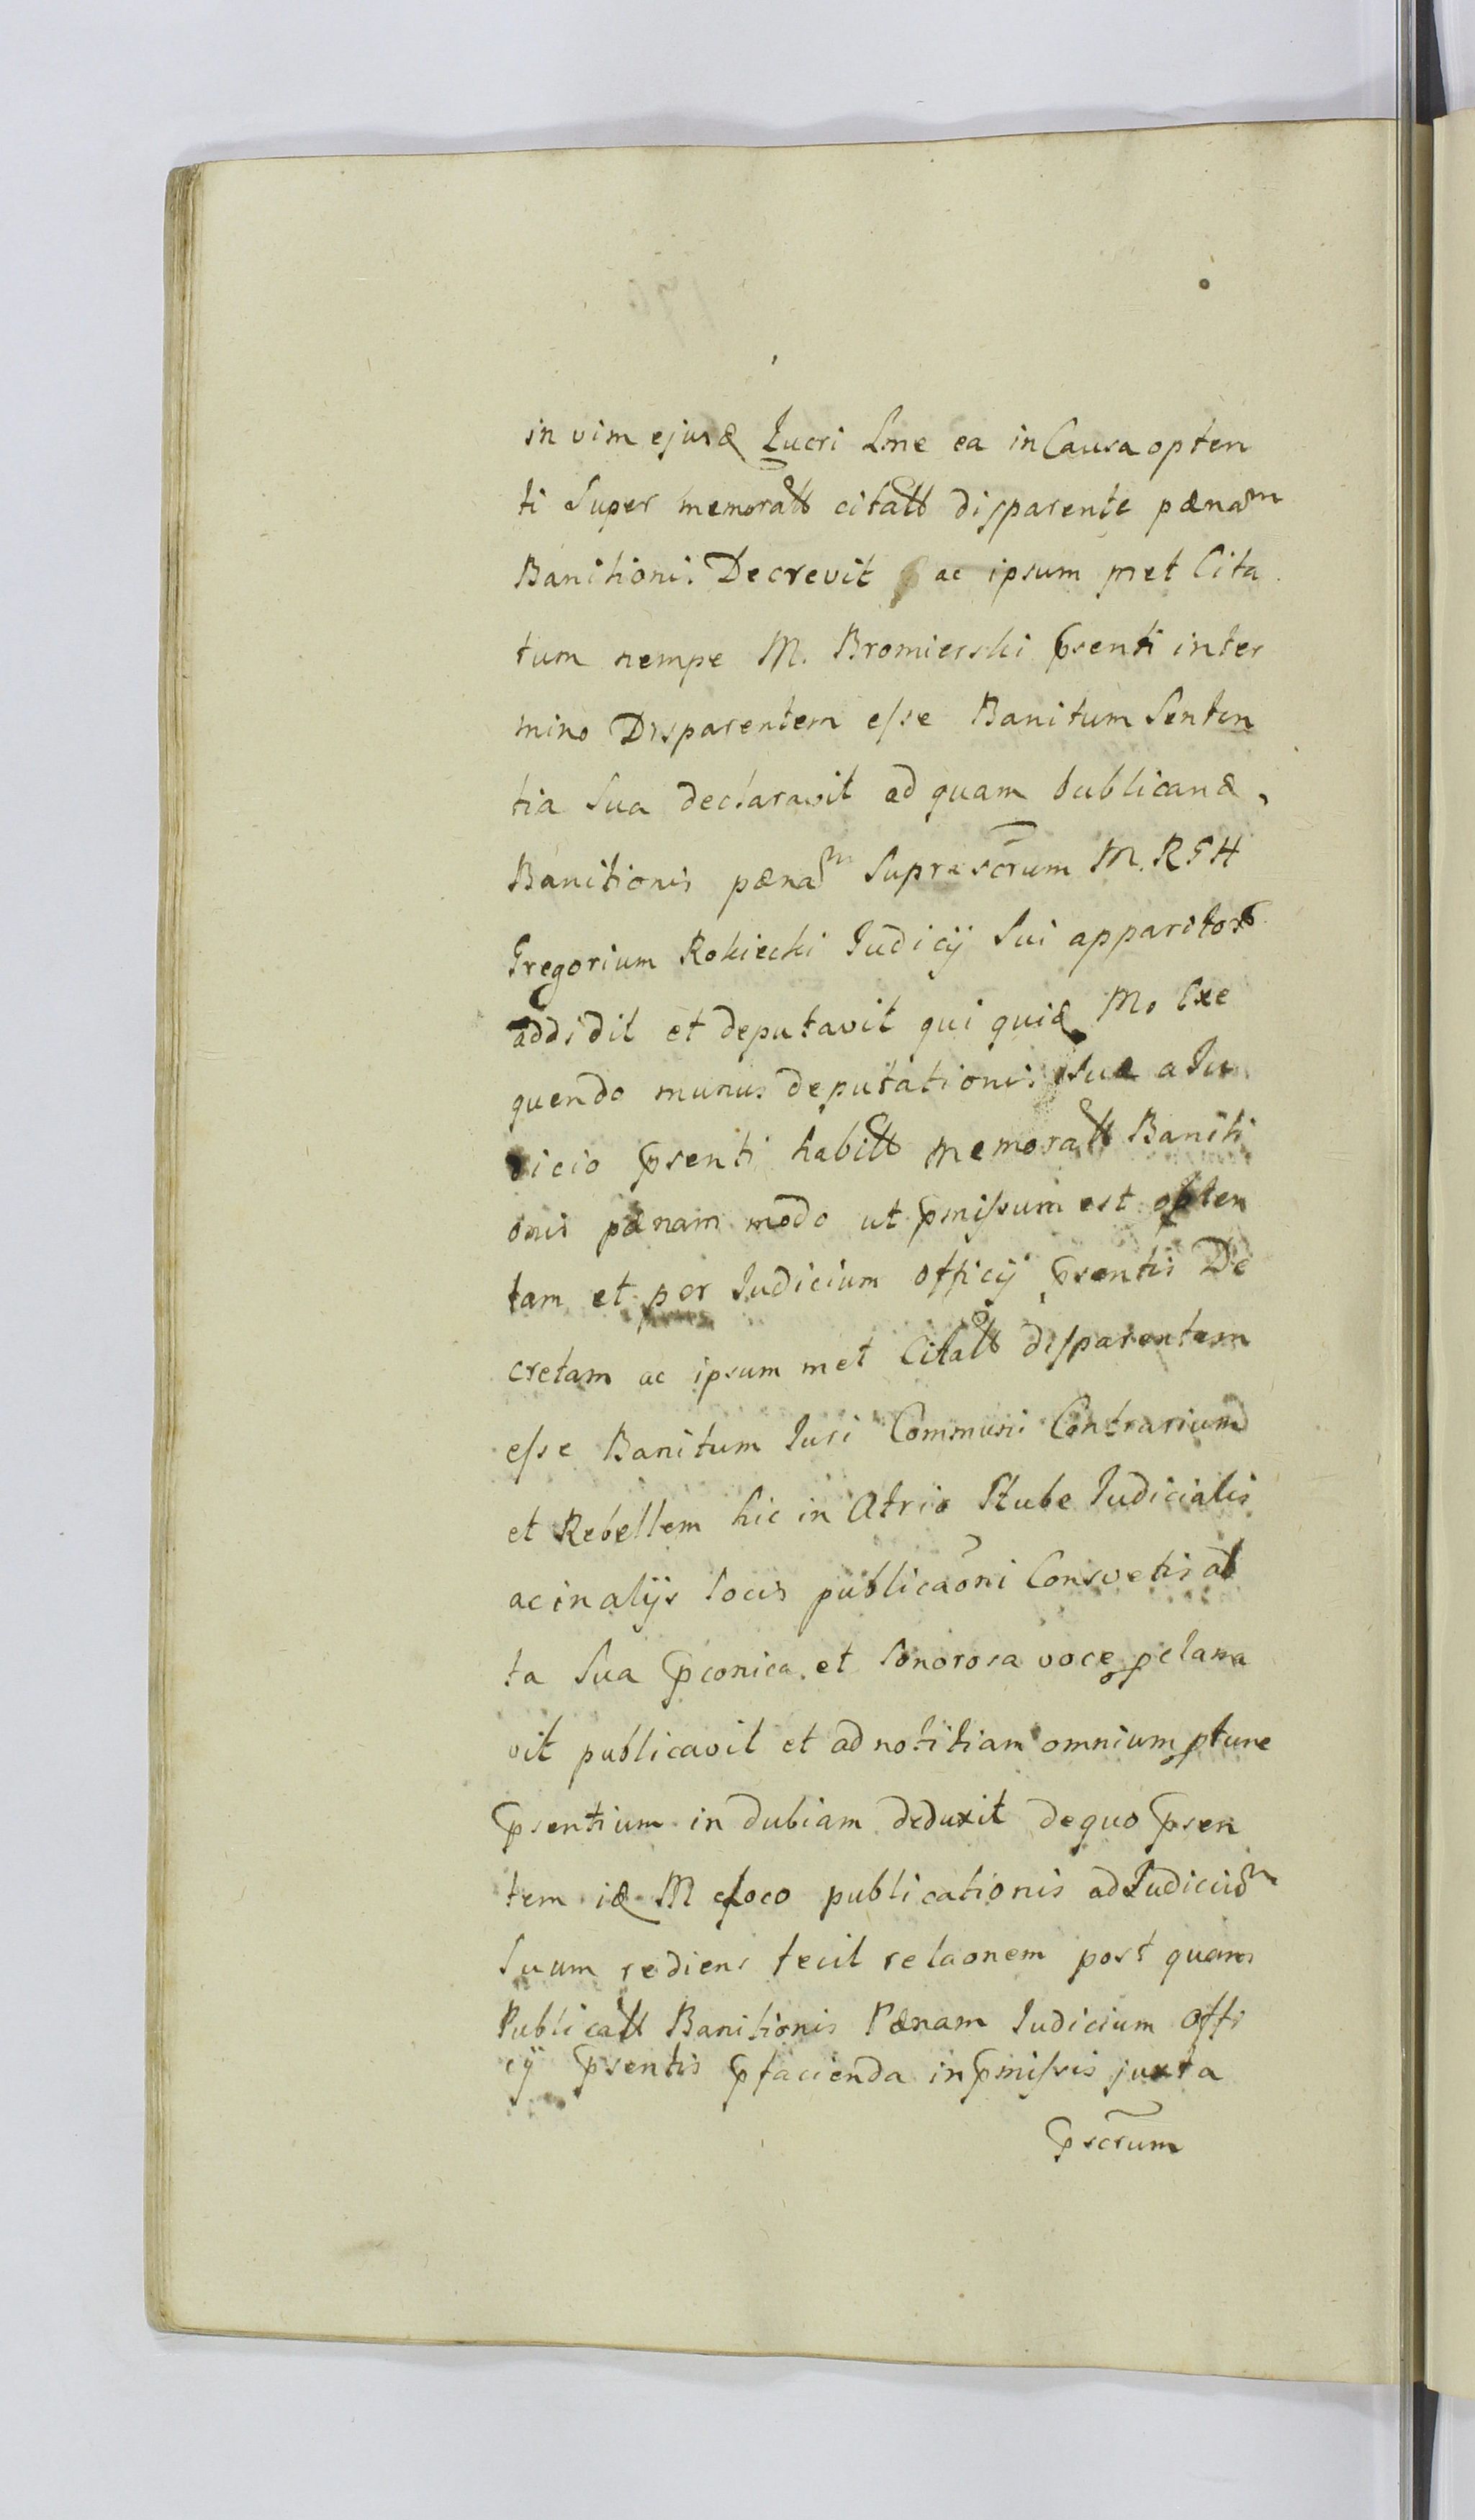 in vim ejusd Lucri Sne ea in Causa opten
ti Super memoratt citatt disparente pænam
Banitionis Decrevit ac ipsum met Cita
tum nempe M. Bromierski psenti inter
mino Disparentem esse Banitum Senten
tia Sua declaravit ad quam publicand
Banitionis pænam Suprascrum M. R G H
Gregorium Rokiecki Iudicij Sui apparitor
addidit et deputavit qui quid M. Exe
quendo munus deputationis Suæ a Iu
dicio psenti habitt memoratt Baniti
onis pænam modo ut pmissum est opten
tam et per Iudicium officij psentis De
cretam ac ipsum met Citatt disparentem
esse Banitum Iuri Communi Contrarium
et Rebellem hic in Atrio Stubæ Iudicialis
ac in alijs locis publicaoni Consvetis al
ta Sua pconica et Sonorosa voce pclama
vit publicavit et ad notitiam omnium ptunc
psentium in dubiam deduxit de quo psen
tem id M e loco publicationis ad Iudicium
Suum rediens fecit relaonem post quam
Publicatt Banitionis Pænam Iudicium Offi
cij psentis pfacienda in pmissis juxta
pscrum